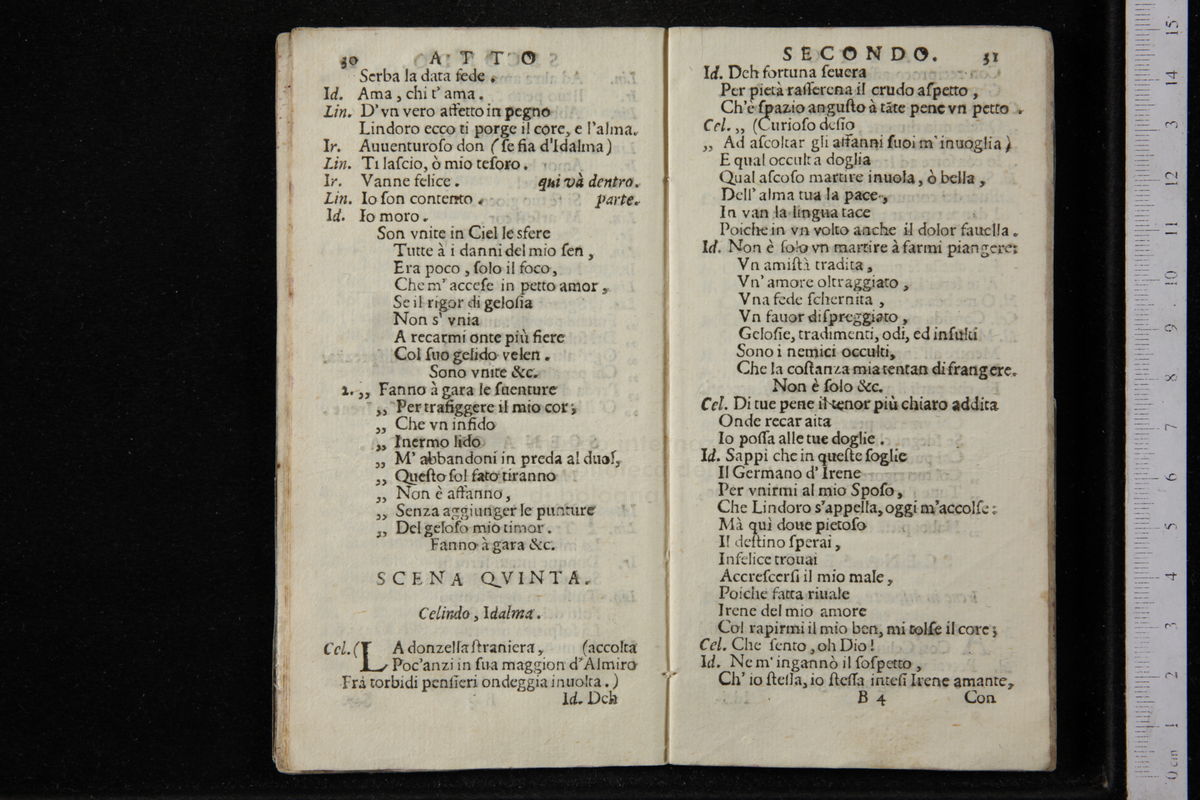 30 ATTO
Serba la data fede.
Id. Ama, chi t'ama.
Lin. D'vn vero affetto in pegno
Lindoro ecco ti porge il core, e l'alma.
Ir. Auuenturoſo don (ſe fia d'Idalma)
Lin. Ti laſcio, ò mio teſoro.
Ir. Vanne felice. qui và dentro.
Lin. Io ſon contento. parte.
Id. Io moro.
Son vnite in Ciel le sfere
Tutte à i danni del mio ſen,
Era poco, ſolo il foco,
Che m'acceſe in petto amor,
Se il rigor di geloſia
Non s'vnia
A recarmi onte più fiere
Col ſuo gelido velen.
Sono vnite &c.
2. ,, Fanno à gara le ſuenture
,, Per trafiggere il mio cor;
,, Che vn infido
,, Inermo lido
,, M'abbandoni in preda al duol,
,, Queſto ſol fato tiranno
,, Non è affanno,
,, Senza aggiunger le punture
,, Del geloſo mio timor.
Fanno à gara &c.
SCENA QVINTA.
Celindo, Idalma.
Cel. (LA donzella ſtraniera, (accolta
Poc'anzi in ſua maggion d'Almiro
Frà torbidi penſieri ondeggia inuolta.)
Id. Deh
SECONDO. 31
Id. Deh fortuna ſeuera
Per pietà raſſerena il crudo aſpetto,
Ch'è ſpazio anguſto à tãte pene vn petto.
Cel. ,, (Curioſo deſio
,, Ad aſcoltar gli affanni ſuoi m'inuoglia)
E qual occulta doglia
Qual aſcoſo martire inuola, ò bella,
Dell'alma tua la pace,
In van la lingua tace
Poiche in vn volto anche il dolor fauella.
Id. Non è ſolo vn martire à farmi piangere;
Vn amiſtà tradita,
Vn'amore oltraggiato,
Vna fede ſchernita,
Vn fauor diſpreggiato,
Geloſie, tradimenti, odi, ed inſulti
Sono i nemici occulti,
Che la coſtanza mia tentan di frangere.
Non è ſolo &c.
Cel. Di tue pene il tenor più chiaro addita
Onde recar aita
Io poſſa alle tue doglie.
Id. Sappi che in queſte ſoglie
Il Germano d'Irene
Per vnirmi al mio Spoſo,
Che Lindoro s'appella, oggi m'accolſe;
Mà quì doue pietoſo
Il deſtino ſperai,
Infelice trouai
Accreſcerſi il mio male,
Poiche fatta riuale
Irene del mio amore
Col rapirmi il mio ben, mi tolſe il core;
Cel. Che ſento, oh Dio!
Id. Ne m'ingannò il ſoſpetto,
Ch'io ſteſſa, io ſteſſa inteſi Irene amante,
B 4 Con